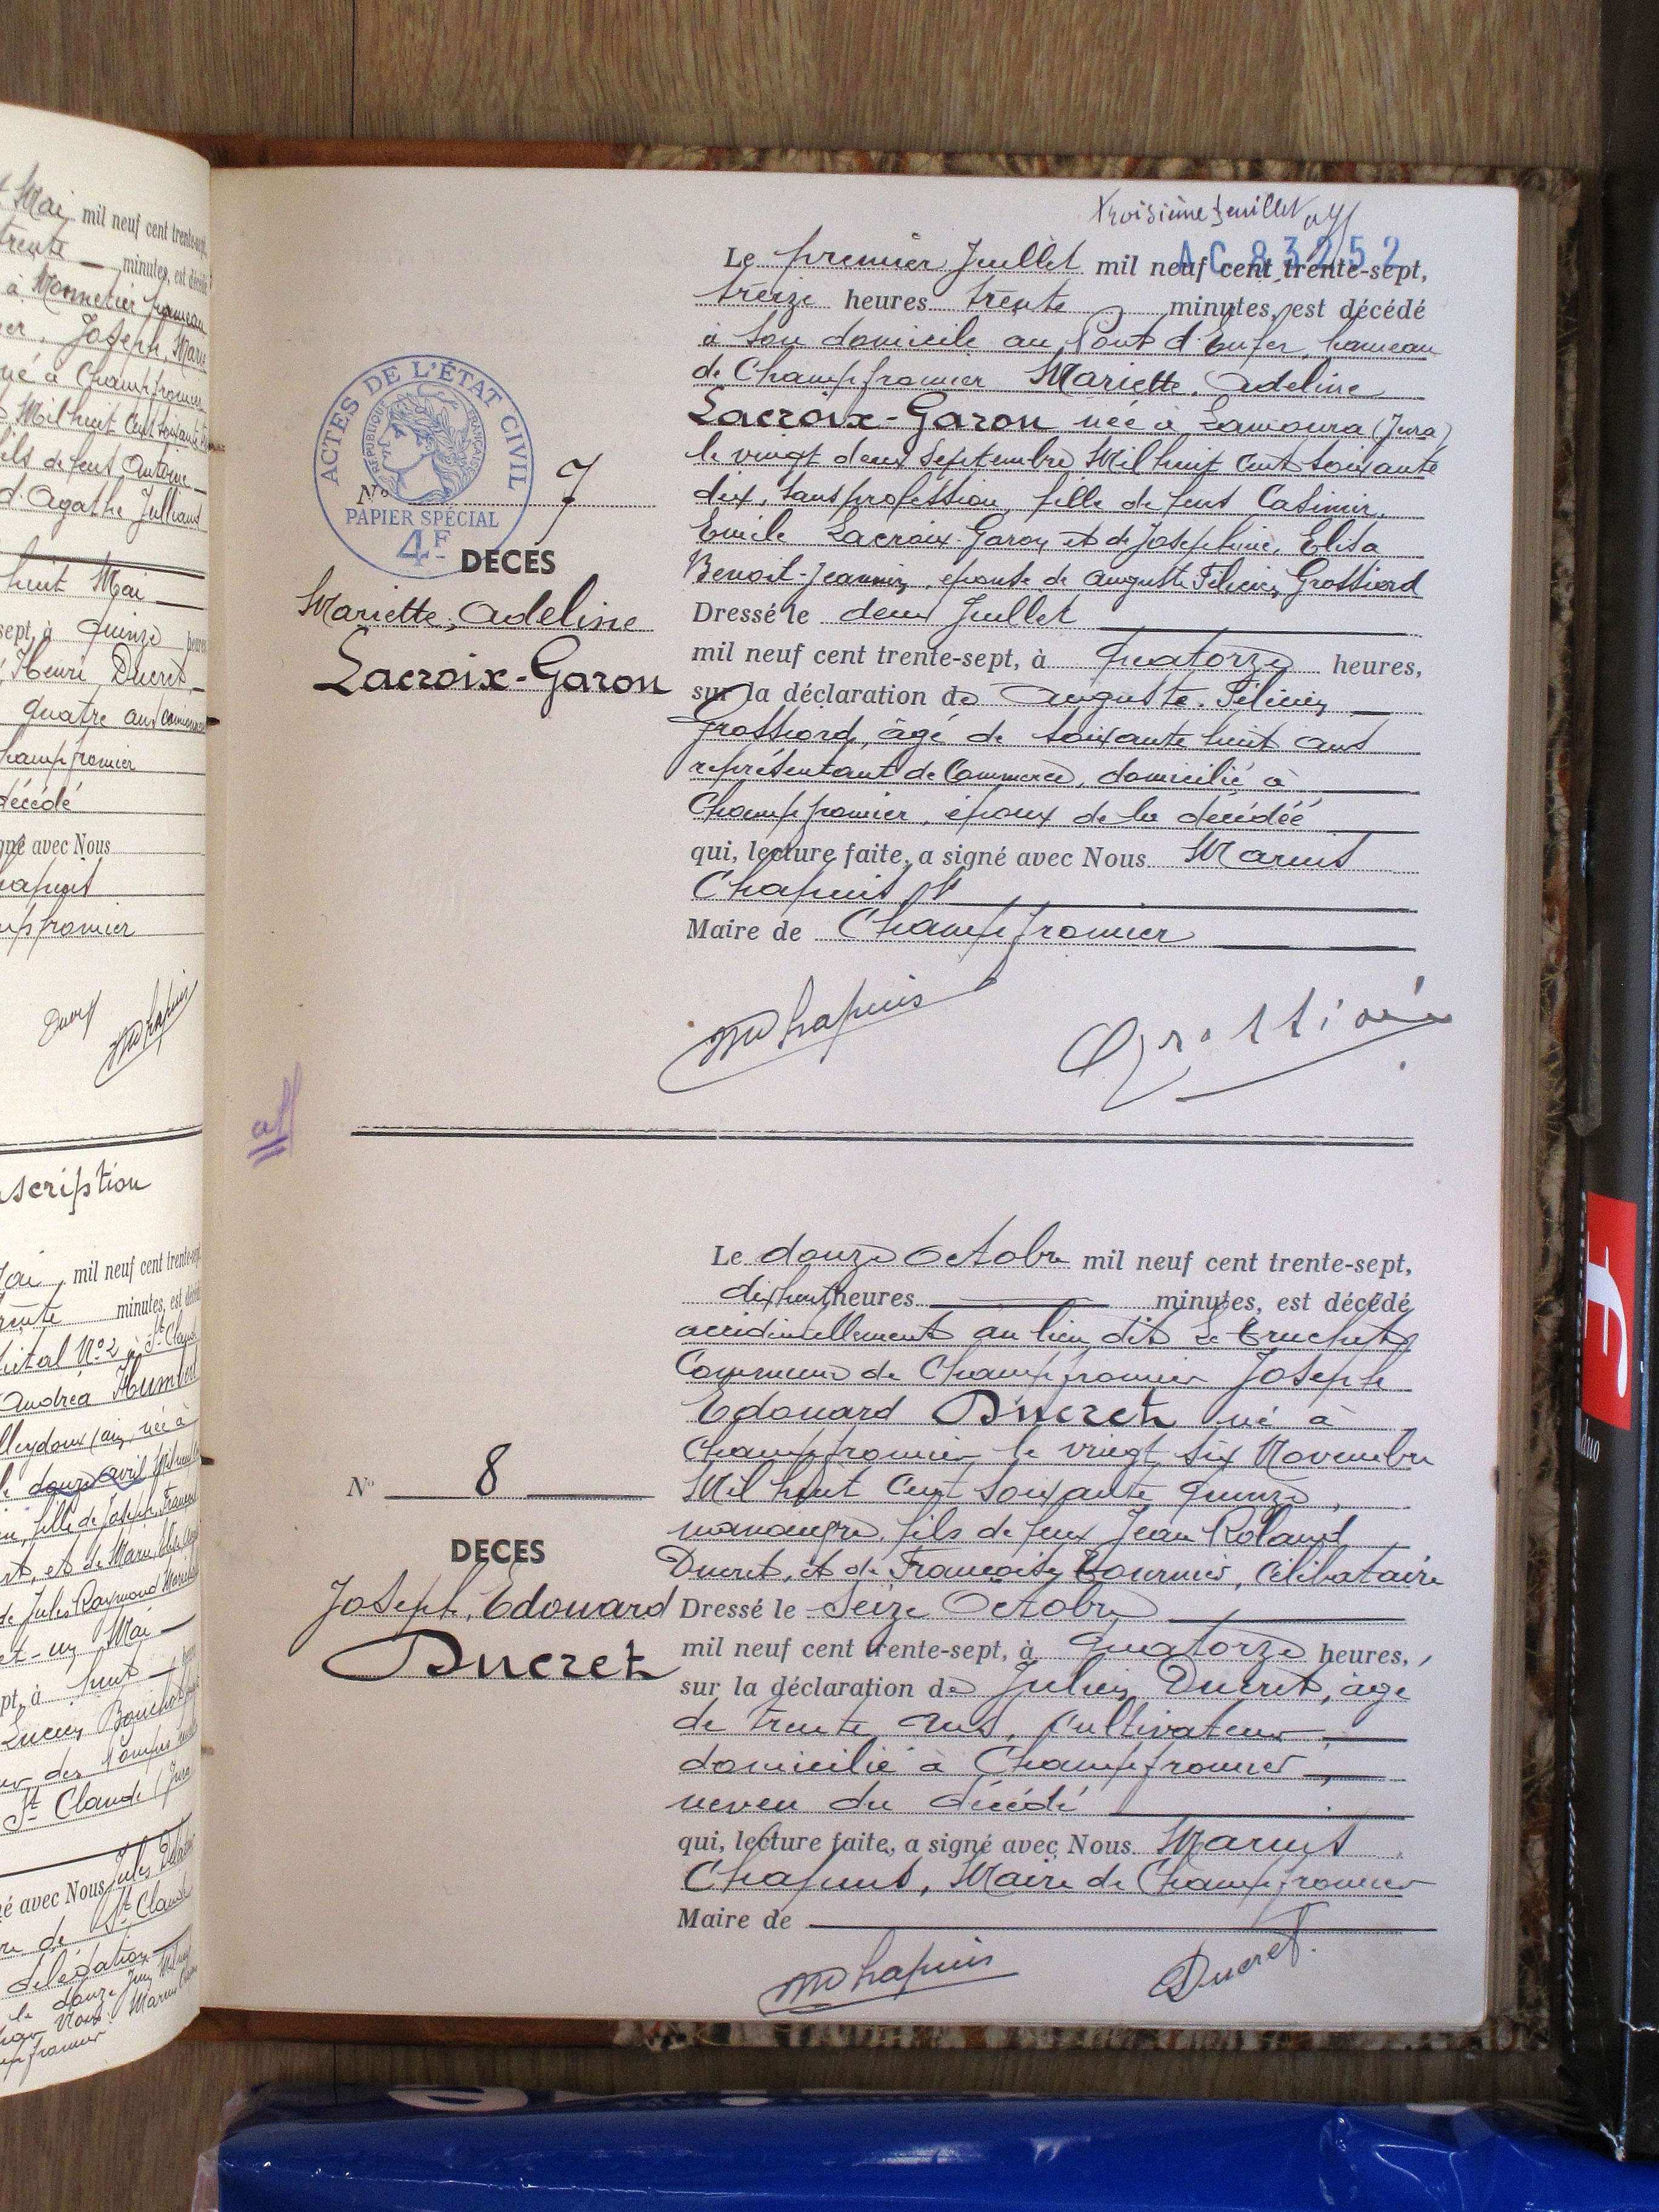 Mai mil neuf cent trente-sept,
trente minutes, est décédé
à Monnetier hameau
Joseph, Marie
né à Champfromier
Mil huit Cent soixante
fils de feus Antoine
d'Agathe Julliand
huit Mai
sept, à quinze heures
Henri Ducret,
quatre ans
Champfromier
décédé
signé avec Nous
Chapuis
Champfromier
Ducret
MChapuis
scription
mil neuf cent trente-sept
trente minutes, est décédé
Hôpital N° 2 à St Claude
Andréa Humbert
née à
douze avril
fille de Joseph, François
et de Marie
de Jules Raymond
et-un Mai
sept, à huit
Lucien
des Pompes
St Claude (Jura
signé avec Nous Jules
de St Claude
délégation
le douze Juin
par Nous Marius
Champfromier
Troisième feuillet
AC 83252
Le premier Juillet mil neuf cent trente-sept,
treize heures trente minutes, est décédé
à son domicile au Pont d'Enfer, hameau
de Champfromier Mariette, Adeline
Lacroix-Garon née à Lamoura (Jura)
le vingt deux Septembre Mil huit Cent soixante
dix, sans profession, fille de feus Casimir,
Emile Lacroix-Garon et de Joséphine, Elisa
Benoit-Jeannin, épouse de Auguste Félicien Grossiord
Dressé le deux Juillet
mil neuf cent trente-sept, à quatorze heures,
sur la déclaration de Auguste, Félicien
Grossiord, âgé de soixante huit ans
représentant de Commerce, domicilié à
Champfromier, époux de la décédée
qui, lecture faite, a signé avec Nous Marius
Chapuis
Maire de Champfromier
ACTES DE L'ÉTAT CIVIL
RÉPUBLIQUE FRANÇAISE
N° 7
PAPIER SPÉCIAL
4F
DECES
Mariette, Adeline
Lacroix-Garon
MChapuis
Grossiord
Le douze Octobre mil neuf cent trente-sept,
dix huit heures minutes, est décédé
accidentellement au lieu dit Le Truchet
Commune de Champfromier Joseph
Edouard Ducret né à
Champfromier le vingt six Novembre
Mil huit Cent soixante quinze,
manœuvre, fils de feux Jean Roland
Ducret, et de Françoise Tournier, Célibataire
Dressé le Seize Octobre
mil neuf cent trente-sept, à quatorze heures,
sur la déclaration de Julien Ducret, âgé
de trente ans, Cultivateur
domicilié à Champfromier
neveu du décédé
qui, lecture faite, a signé avec Nous Marius
Chapuis, Maire de Champfromier
Maire de
N° 8
DECES
Joseph, Edouard
Ducret
MChapuis
Ducret